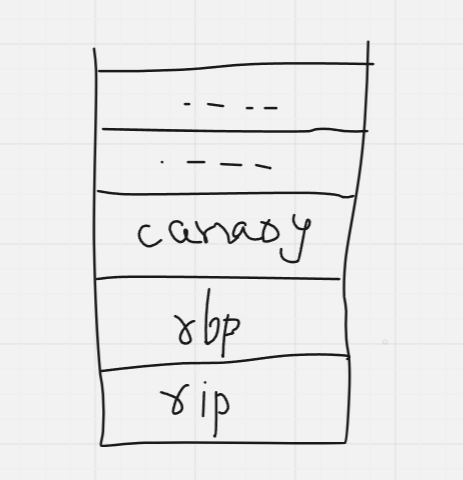 canary
rbp
rip